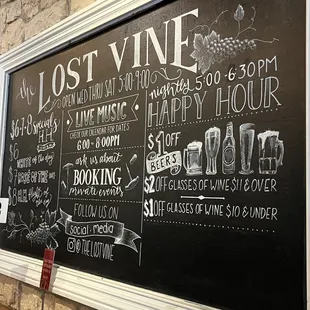 the
LOST VINE
OPEN WED THRU SAT 5:00-9:00
LIVE MUSIC
CHECK OUR CALENDAR FOR DATES
6:00 - 8:00PM
ask us about
BOOKING
private events
FOLLOW US ON
social media
@THELOSTVINE
nightly 5:00-6:30PM
HAPPY HOUR
$1 OFF
BEERS
$2 OFF GLASSES OF WINE $11 & OVER
$1 OFF GLASSES OF WINE $10 & UNDER
$6-7-8 Specials
$6
$7
$8